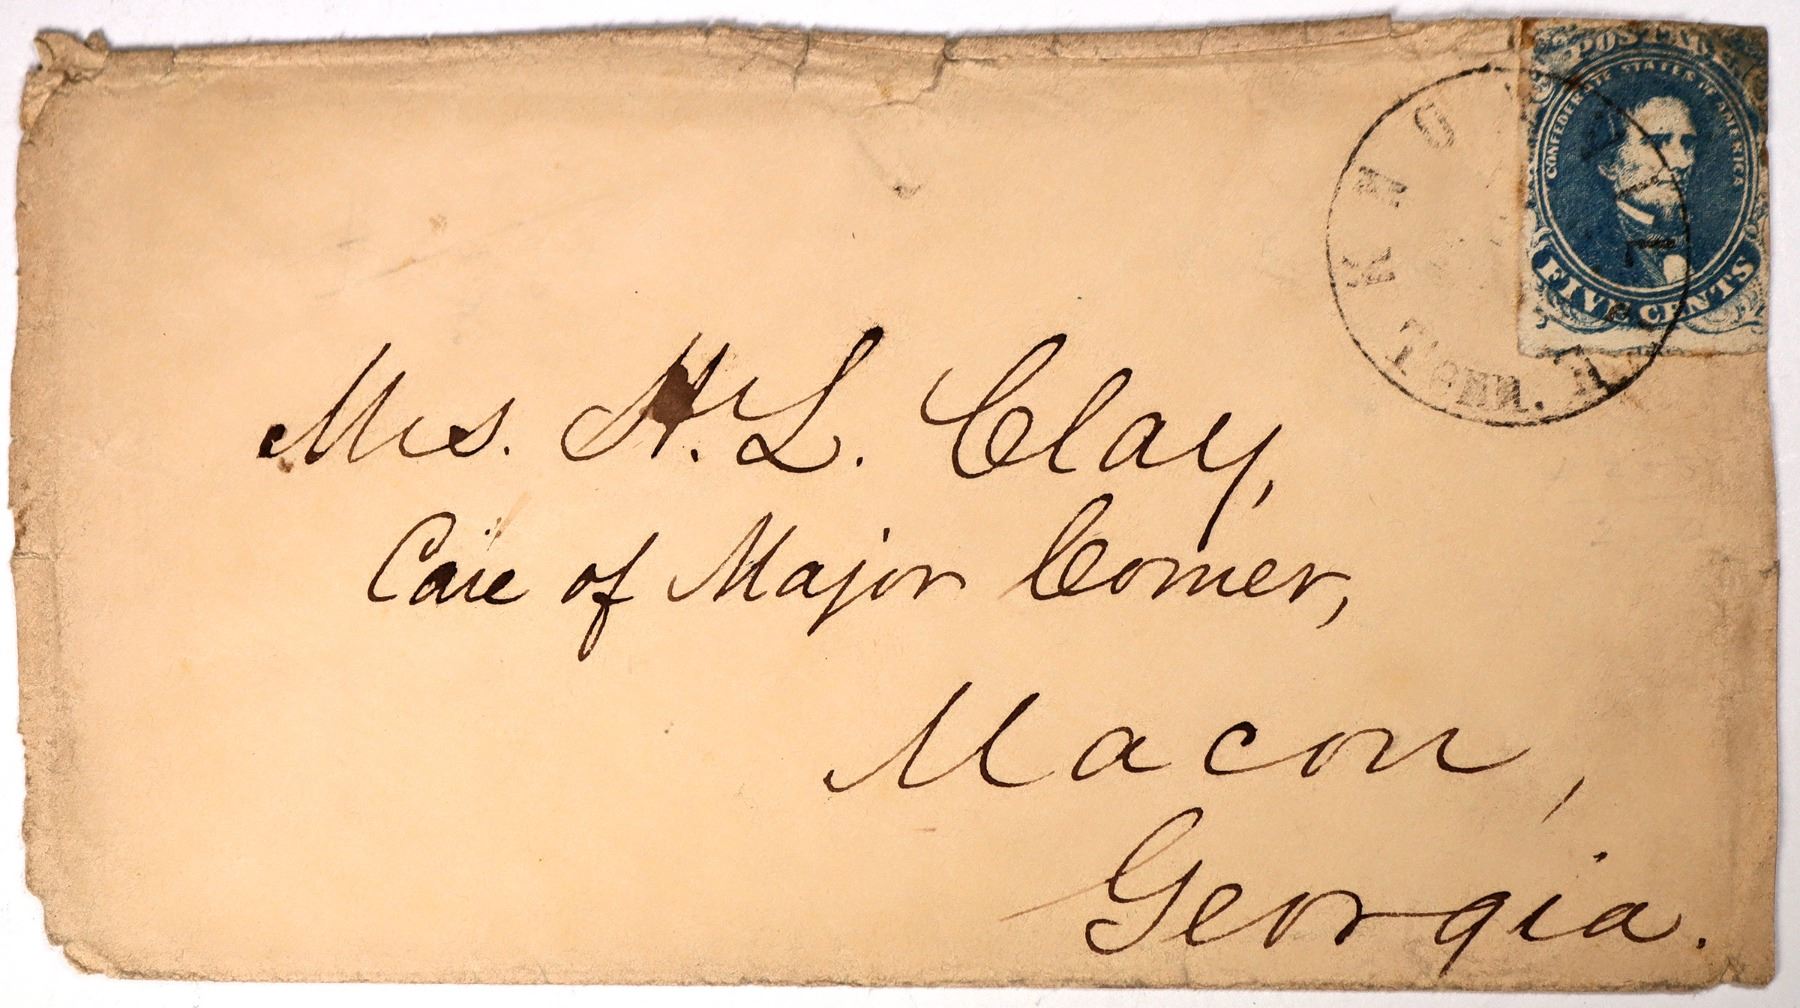 POSTAGE
CONFEDERATE STATES OF AMERICA
FIVE CENTS
KNO
TENN.
Mrs. H. L. Clay,
Care of Major Comer,
Macon,
Georgia.